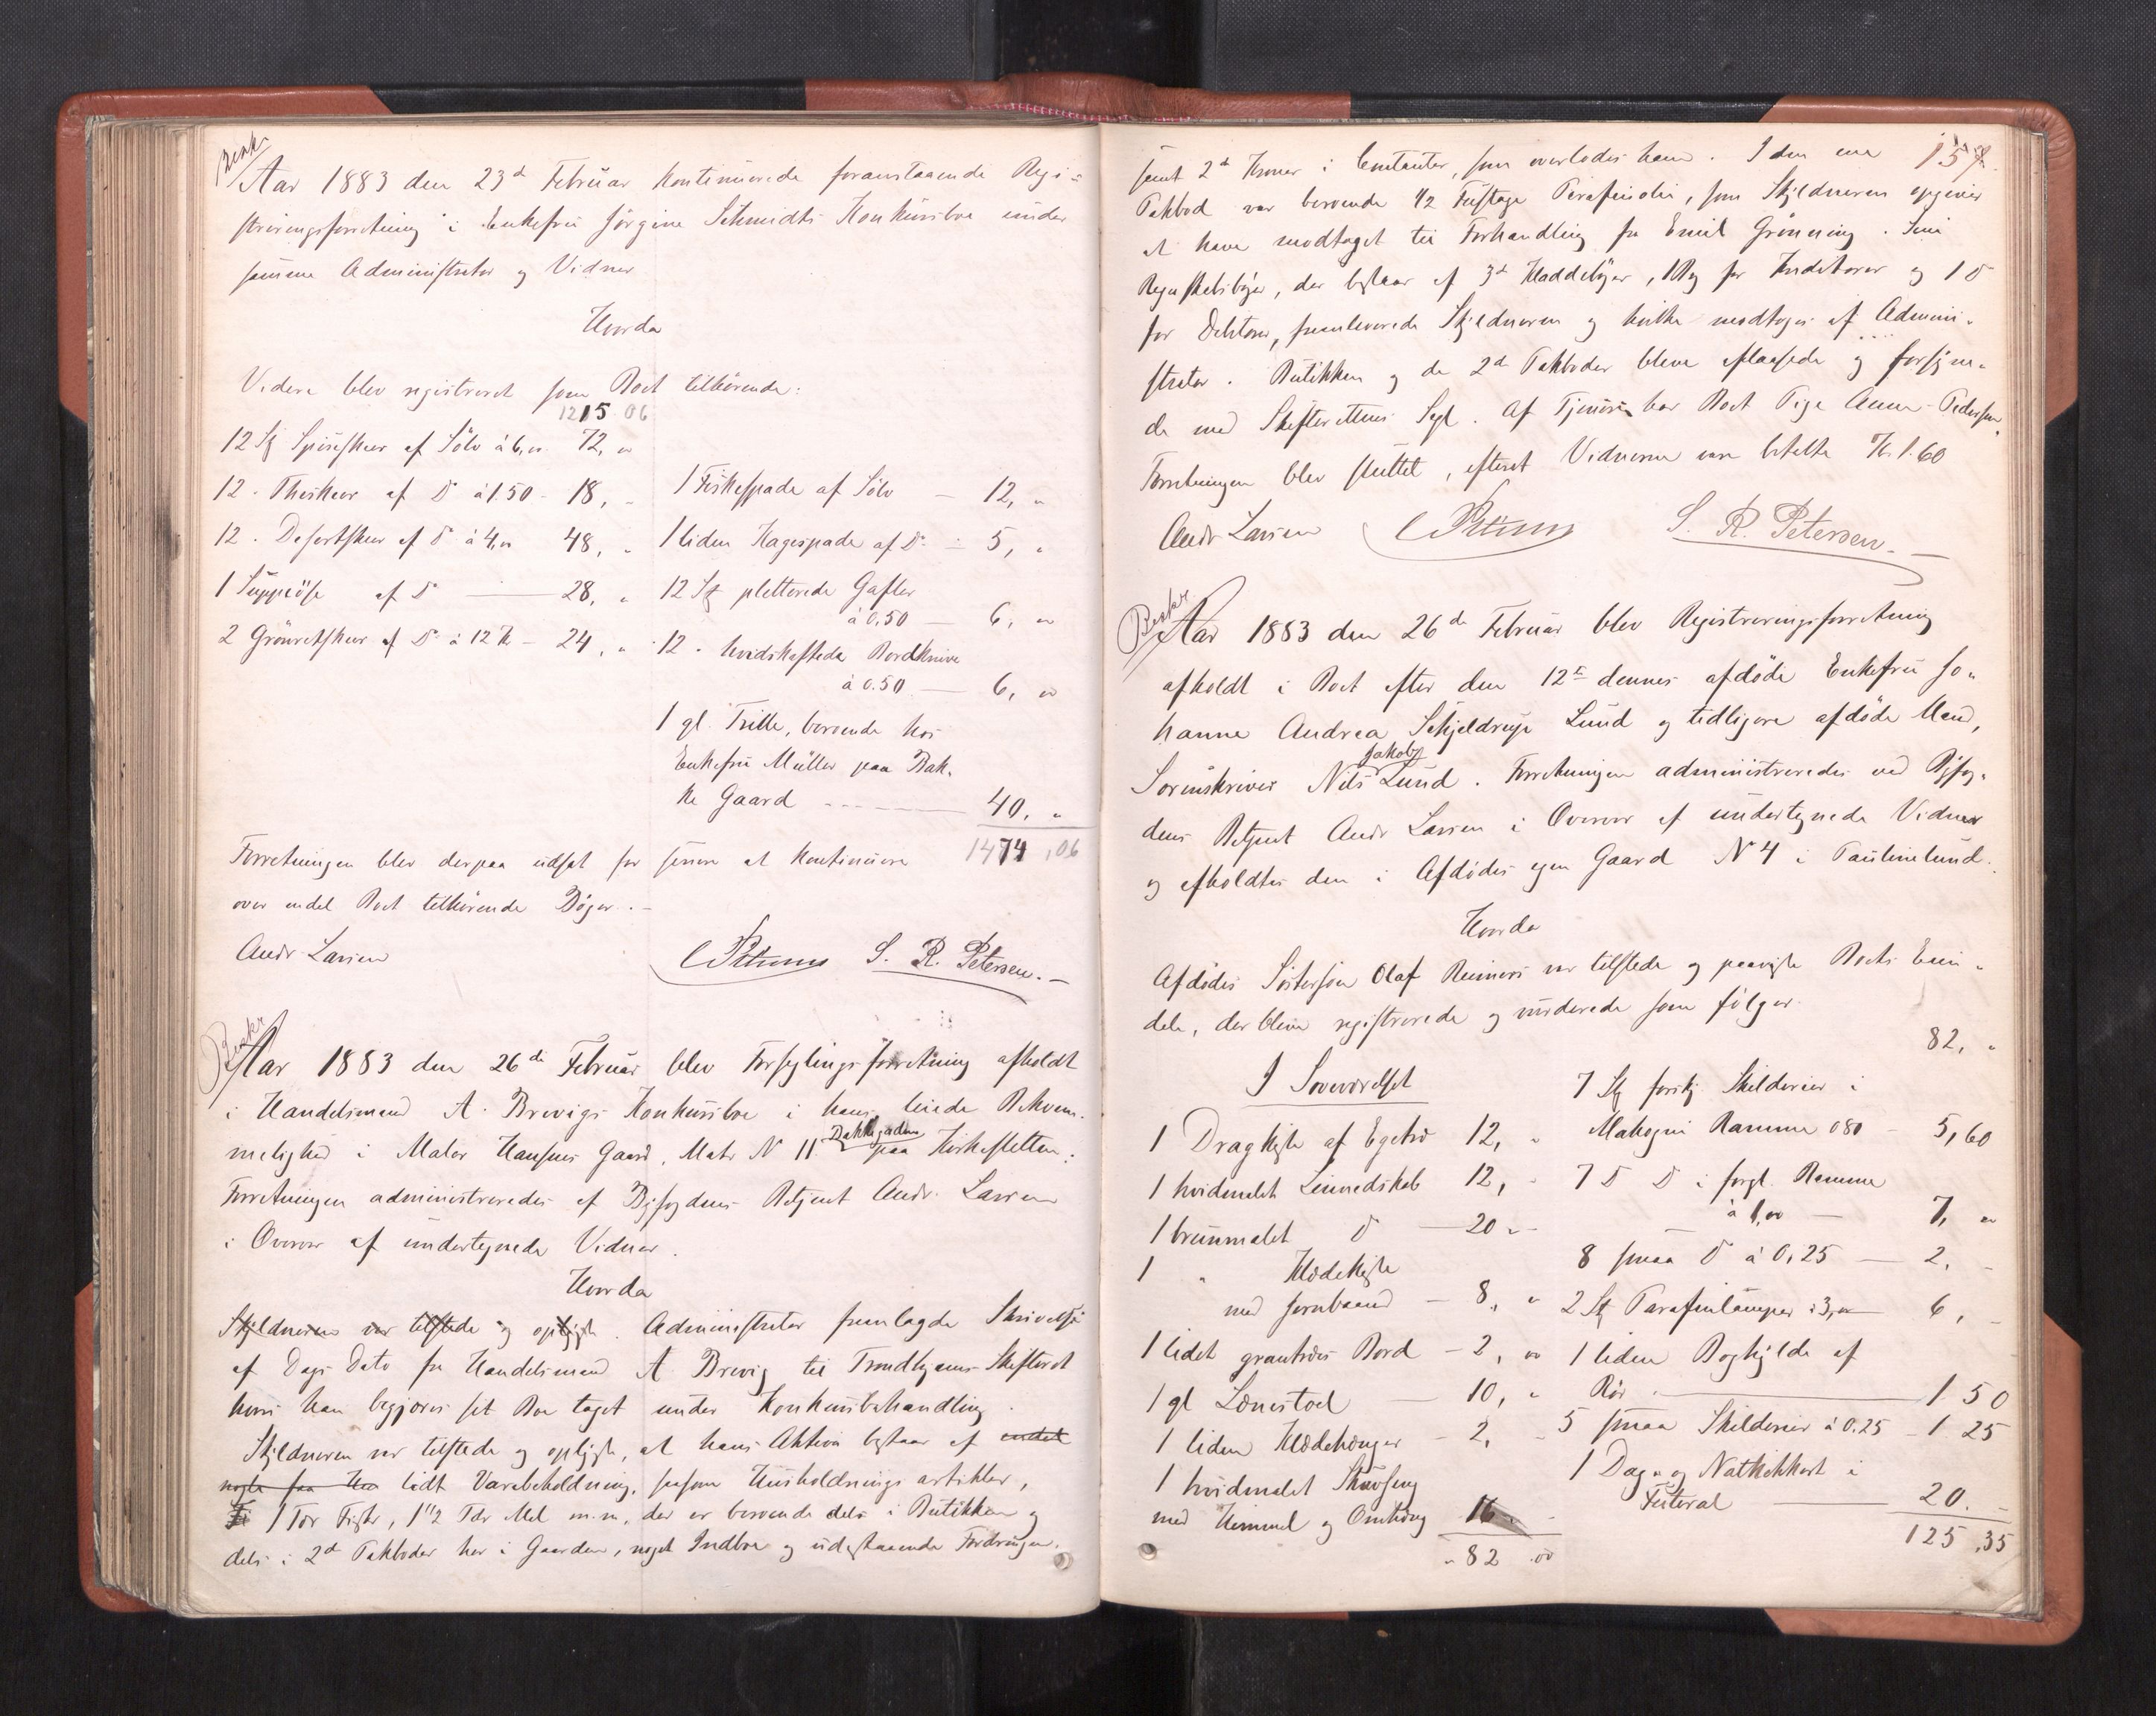 Beskr
Aar 1883 den 23d Februar kontinuerede foranstaaende Regi-
streringsforretning i Enkefru Jørgine Schmidts Konkursbo under
samme Administrator og Vidner
Hvorda
Videre blev registreret som Boet tilhørende:
1215 06
12 St Spiseskeer af Sölv à 6,00 72, 00
12 - Theskeer af Do à 1.50 - 18, "
12 - Desertskeer af Do à 4,00 48, "
1 Suppeöse af Do 28, "
2 Grönretskeer af Do à 12 Kr - 24, "
1 Fiskespade af Sölv - 12, "
1 liden Kagespade af Do - 5, "
12 St pletterede Gafler
à 0,50 - 6, 00
12 - hvidskaftede Bordknive
à 0.50 - 6, 00
1 gl. Trille, beroende hos
Enkefru Müller paa Bak-
ke Gaard - 40, "
1474,06
Forretningen blev derpaa udsat for senere at kontinuere
over endel Boet tilhørende Bøger. -
Andr Larsen
S. R. Petersen. -
Beskr
Aar 1883 den 26de Februar blev Forseglingsforretning afholdt
i Handelsmand A. Brevigs Konkursbo i hans leiede Bekvem-
melighed i Maler Hansens Gaard, Matr N 11 Bakkegaden paa Kirkesletten.
Forretningen administreredes af Byfogdens Betjent Andr. Larsen
i Overvær af undertegnede Vidner.
Hvorda
Skyldneren var tilstede og oplyste. Administrator fremlagde Skrivelse
af Dags Dato fra Handelsmand A. Brevig til Trondhjems Skifteret
hvori han begjærer sit Bo taget under Konkursbehandling.
Skyldneren var tilstede og oplyste, at hans Aktiva bestaar af endel
nogle faa lidt Varebeholdning, saasom Husholdningsartikler,
1 Tdr Fisk, 1 1/2 Tdr Mel m.m., der er beroende dels i Butikken og
dels i 2de Pakboder her i Gaarden, noget Indbo og udestaaende Fordringer,
157
samt 2de Kroner i Contanter, som overlodes ham. I den ene
Pakbod var beroende 1/2 Fustage Parafinolie, som Skyldneren opgiver
at have modtaget til Forhandling fra Emil Grönning. Sine
Regnskabsbøger, der bestaar af 3de Kladdebøger, 1 Bog for Kreditorer og 1 Do
for Debitorer, fremleverede Skyldneren og hvilke modtoges af Admini-
strator. Butikken og de 2de Pakboder bleve aflaasede og forsyne-
de med Skifterettens Segl. Af Tjenere har Boet Pige Anne Pedersen.
Forretningen blev sluttet, efterat Vidnerne vare betalte Kr. 1.60
Andr Larsen
S. R. Petersen. -
Beskr
Aar 1883 den 26de Februar blev Registreringsforretning
afholdt i Boet efter den 12te dennes afdöde Enkefru Jo-
hanne Andrea Schjeldrup Lund og tidligere afdöde Mand,
Sorenskriver Nils Jakob Lund. Forretningen administreredes ved Byfog-
dens Betjent Andr Larsen i Overvær af undertegnede Vidner
og afholdtes den i Afdödes egen Gaard N 4 i Paulinelund.
Hvorda
Afdödes Söstersön Olaf Reimers var tilstede og paaviste Boets Eien-
dele, der bleve registrerede og vurderede som fölger.
I Soveværelset
1 Dragkiste af Egetræ 12, "
1 hvidmalet Linnedskab 12, -
1 brunmalet Do - 20 "
1 " Klædekiste
med Jernbaand - 8, "
1 lidet grantræes Bord - 2, 00
1 gl Lænestol - 10, "
1 liden Klædehænger - 2, -
1 hvidmalet Skuvseng
med Himmel og Omhæng 16 -
- 82 .00
82, "
7 St forskj. Skilderier i
Mahogni Ramme 0 80 - 5,60
7 Do Do i forgl. Ramme
à 1,00 - 7, 00
8 smaa Do à 0,25 - 2, -
2 St Parafinlamper à 3,00 - 6, -
1 liden Boghylde af
Rör - 1 50
5 smaa Skilderier à 0.25 - 1 25
1 Dag- og Natkikkert i
Futeral - 20. -
125,35